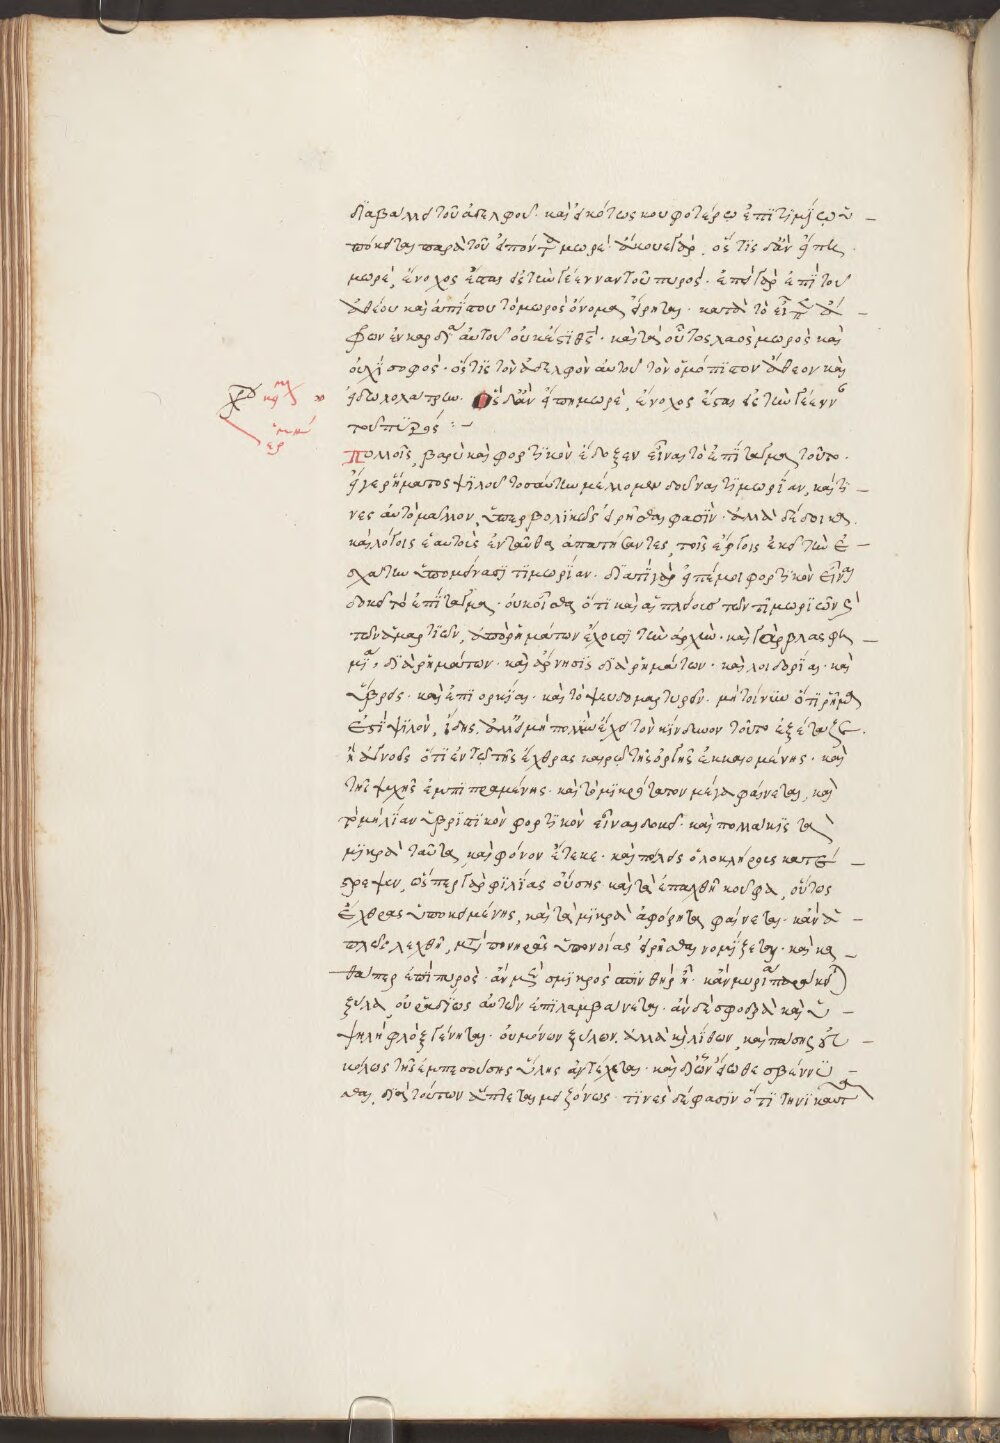 διαβάλλει τοῦ ἀδελφοῦ· καὶ εἰκότως κουφοτέρῳ ἐπιτιμίῳ ὑ
πόκειται παρὰ τοῦ εἰπόντος μωρέ· ἄκουε γάρ, ὅστις δἂν εἴπῃ
μωρέ, ἔνοχος ἔσται εἰς τὴν γέενναν τοῦ πυρός· ἐπεὶ γὰρ ἐπὶ τοῦ
ἀθέου καὶ ἀπίστου τὸ μωρὸς ὄνομα εἴρηται· κατὰ τὸ εἶπεν ἄ
φρων ἐν καρδίᾳ αὐτοῦ οὐκ ἔστι θεός· καὶ τὰ οὗτος λαὸς μωρὸς καὶ
οὐχὶ σοφός· ὅστις τὸν ἀδελφὸν αὐτοῦ τὸν ὁμόπιστον ἄθεον καὶ
εἰδωλολάτρην. ὃς δἂν εἴπῃ μωρέ, ἔνοχος ἔσται εἰς τὴν γέενναν
τοῦ πυρός :—
Πολλοῖς βαρὺ καὶ φορτικὸν ἔδοξεν εἶναι τὸ ἐπίταγμα τοῦτο·
εἴγε ῥήματος ψιλοῦ τοσαύτην μέλλομεν δοῦναι τιμωρίαν, καί τι
νες αὐτὸ μᾶλλον, ὑπερβολικῶς εἰρῆσθαι φασίν· ἀλλὰ δέδοικα
καὶ λόγοις ἑαυτοὺς ἐνταῦθα ἀπατήσαντες, τοῖς ἔργοις ἐκεῖ τὴν ἐ
σχάτην ὑπομείνωσι τιμωρίαν. διατί γὰρ εἰπέ μοι φορτικὸν εἶναι
δοκεῖ τὸ ἐπίταγμα· οὐκ οἶσθα ὅτι καὶ αἱ πλείους τῶν τιμωριῶν καὶ
τῶν ἁμαρτιῶν, ἀπὸ ῥημάτων ἔχουσι τὴν ἀρχήν· καὶ γὰρ βλασφη
μίαι διὰ ῥημάτων· καὶ ἄρνησις διὰ ῥημάτων· καὶ λοιδορίαι· καὶ
ὕβρεις· καὶ ἐπιορκίαι· καὶ τὸ ψευδομαρτυρεῖν· μὴ τοίνυν ὅτι ῥῆμα
ἐστὶ ψιλὸν, ἴδης, ἀλλ᾽ εἰ μὴ πολὺν ἔχει τὸν κίνδυνον τοῦτο ἐξέταζε.
ἢ ἀγνοεῖς ὅτι ἐν τῷ τῆς ἔχθρας καιρῷ τῆς ὀργῆς ἐκκαιομένης· καὶ
τῆς ψυχῆς ἐμπιπραμένης· καὶ τὸ μικρότατον μέγα φαίνεται, καὶ
τὸ μὴ λίαν ὑβριστικὸν φορτικὸν εἶναι δοκεῖ· καὶ πολλάκις τὰ
μικρὰ ταῦτα, καὶ φόνον ἔτεκε· καὶ πόλεις ὁλοκλήρους κατέ
στρεψεν, ὥσπερ γὰρ φιλίας οὔσης καὶ τὰ ἐπαχθῆ κοῦφα, οὕτως
ἔχθρας ὑποκειμένης, καὶ τὰ μικρὰ ἀφόρητα φαίνεται· κἂν ἁ
πλῶς λεχθῇ, μετὰ πονηρᾶς ὑπονοίας εἰρῆσθαι νομίζεται· καὶ κα
θάπερ ἐπὶ πυρὸς· ἂν μὲν σμικρὸς σπινθήρ ᾖ· κἂν μυρία παρακέηται
ξύλα, οὐ ῥᾳδίως αὐτῶν ἐπιλαμβάνεται· ἂν δὲ σφοδρὰ καὶ ὑ
ψηλὴ φλὸξ γένηται· οὐ μόνον ξύλων, ἀλλὰ καὶ λίθων, καὶ πάσης εὐ
κόλως τῆς ἐμπεσούσης ὕλης ἀντέχεται· καὶ δι᾽ ὧν εἴωθε σβέννυ
σθαι, διὰ τούτων ἅπτεται μειζόνως· τινὲς δέ φασιν ὅτι τηνικαῦτα